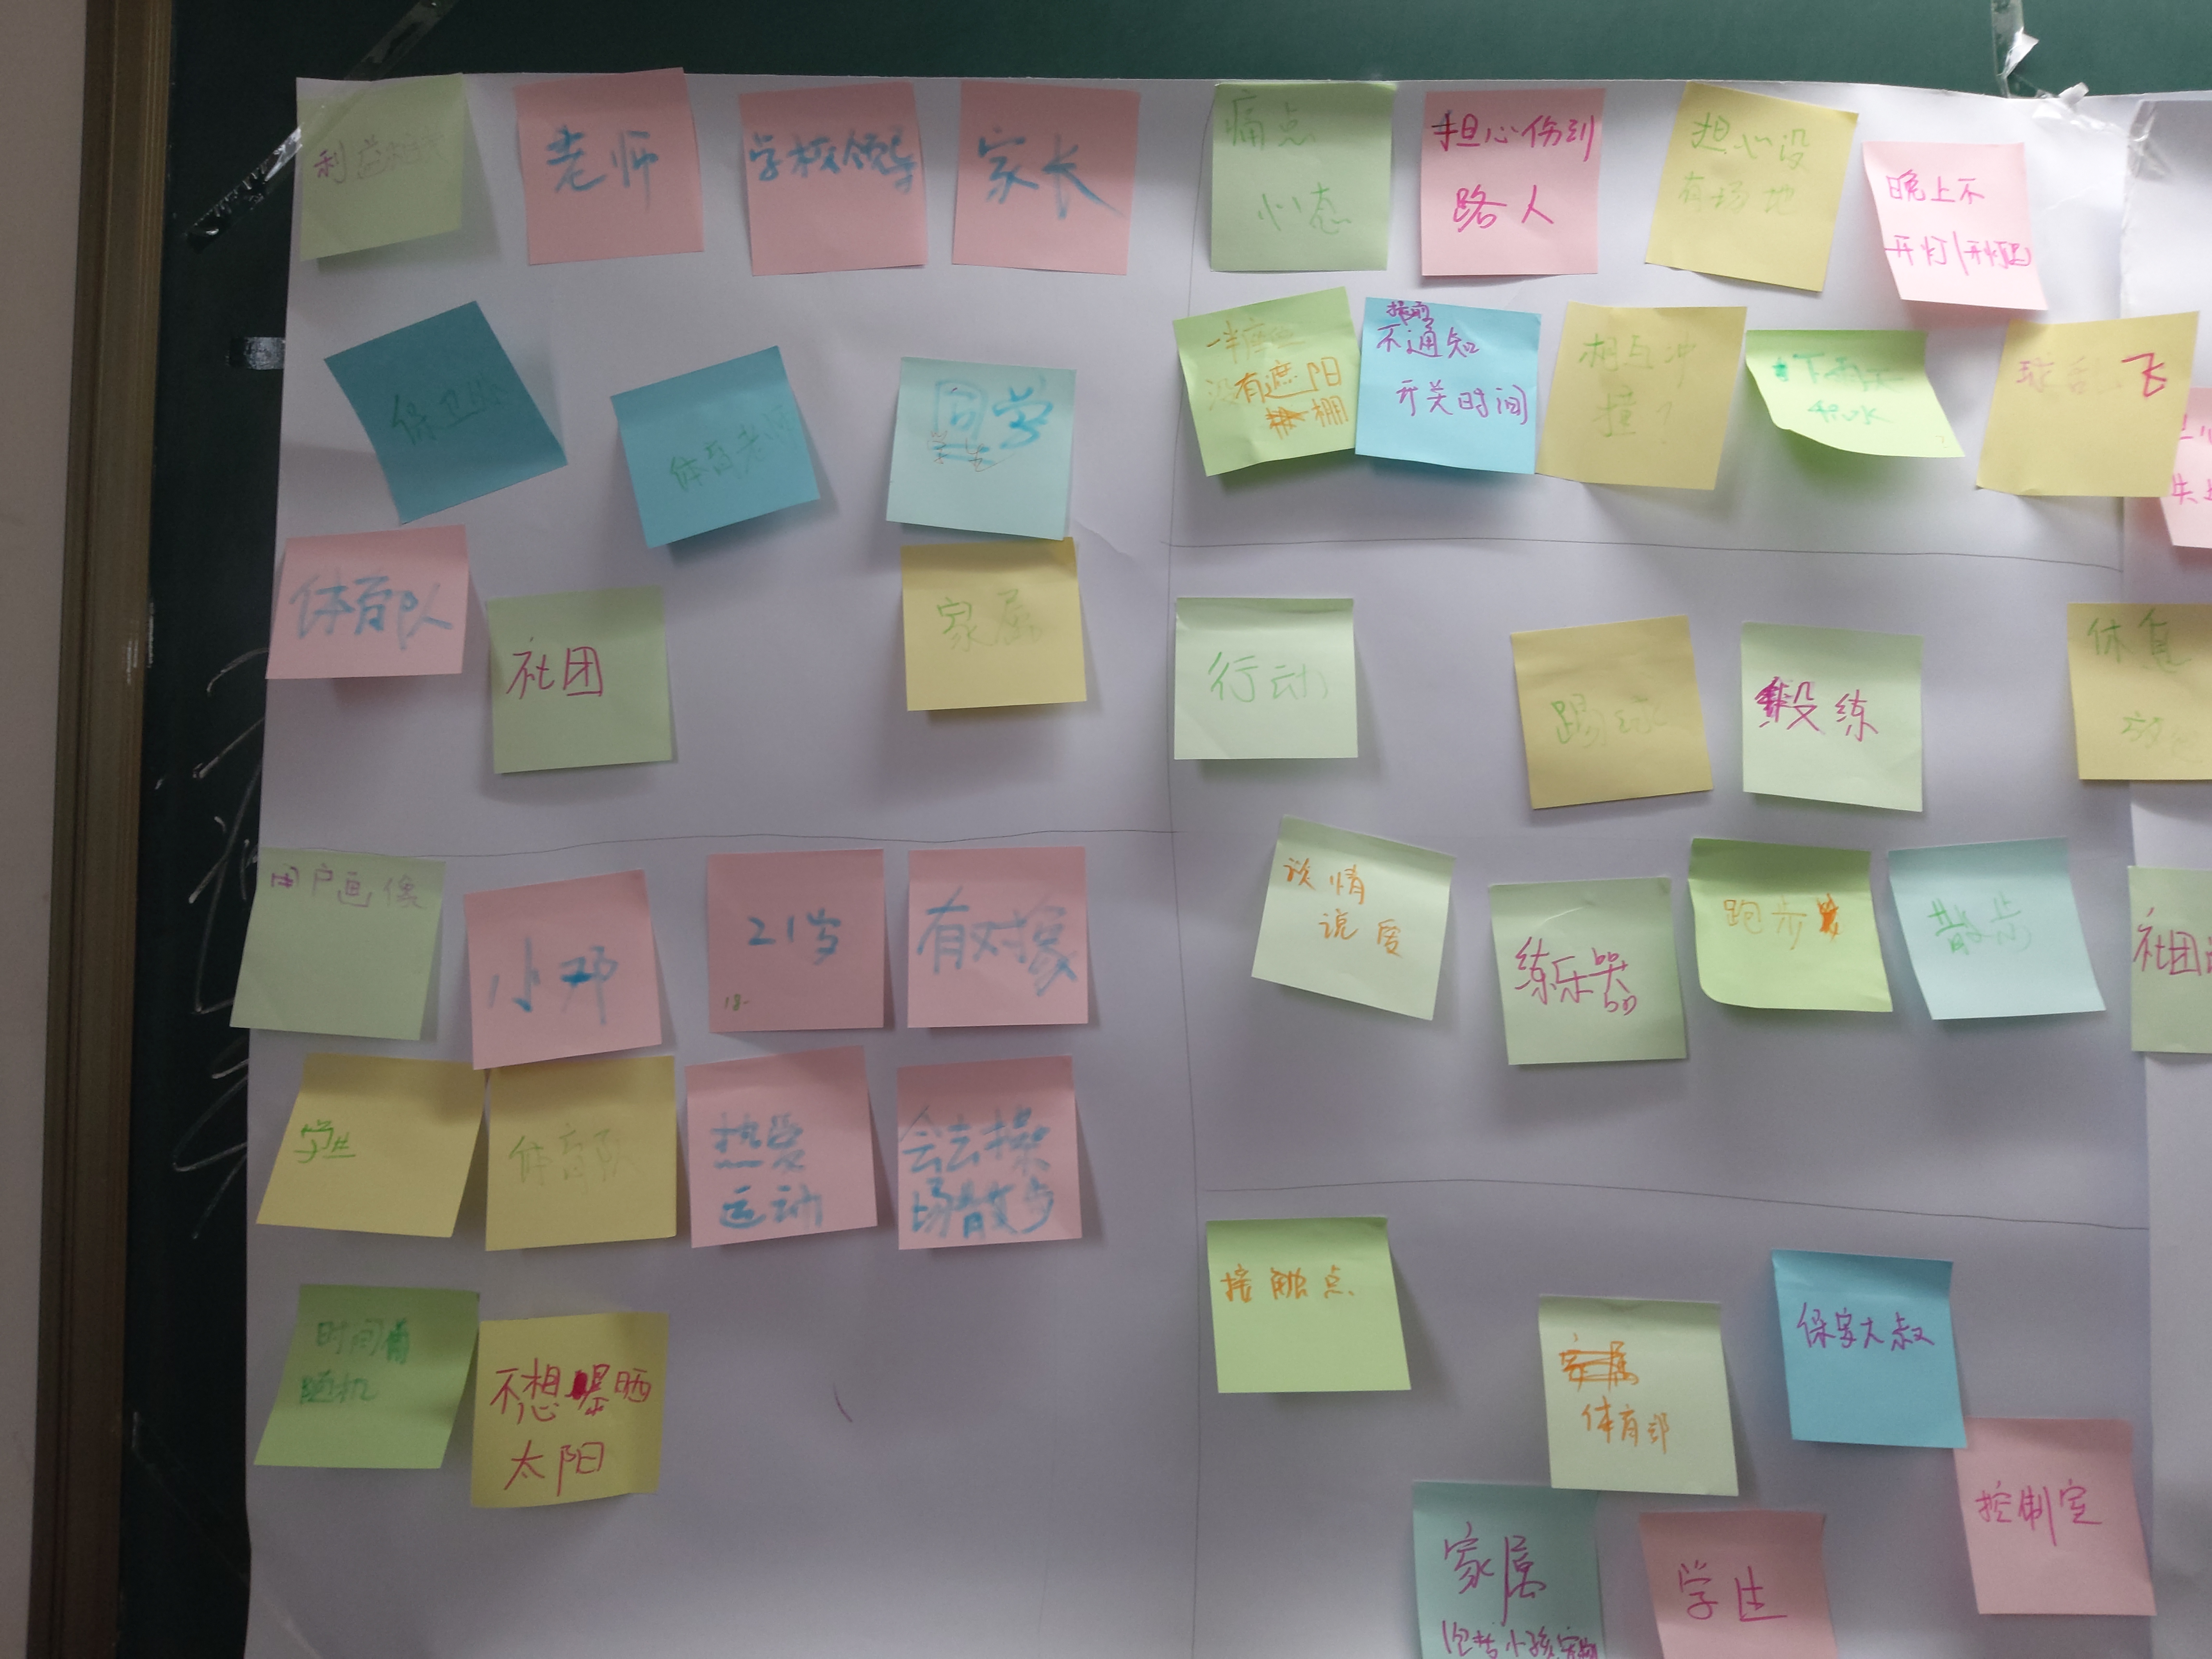 利益
老师
学校领导
家长
保卫处
体育老师
同学
学生
体育队
社团
家属
用户画像
小邓
21岁
18-
有对象
学生
体育队
热爱
运动
会去操
场散步
时间
随机
不想曝晒
太阳
痛点
心态
担心伤到
路人
担心没
有场地
晚上不
开灯/开灯
一半
没有遮阳
棚
提前
不通知
开关时间
相互冲
撞?
下雨天
积水
飞
失
行动
踢球
锻练
休息
谈情
说爱
练乐器
跑步
散步
社团
接触点
家属
体育部
保安大叔
控制室
家属
包括小孩宠物
学生